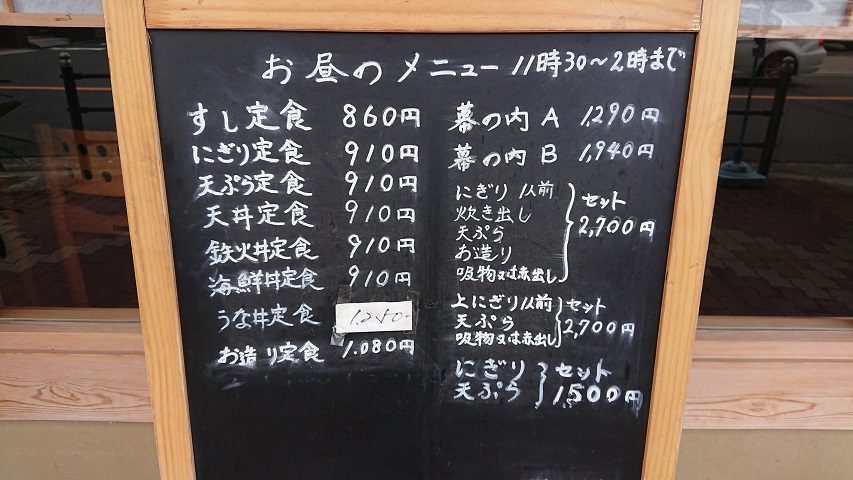 お昼のメニュー 11時30～2時まで
すし定食 860円
にぎり定食 910円
天ぷら定食 910円
天丼定食 910円
鉄火丼定食 910円
海鮮丼定食 910円
うな丼定食
お造り定食 1.080円
幕の内 A 1,290円
幕の内 B 1,940円
にぎり 1人前
炊き出し
天ぷら
お造り
吸物又は赤出し
セット
2,700円
上にぎり1人前
天ぷら
吸物又は赤出し
セット
2,700円
にぎり
天ぷら
セット
1,500円